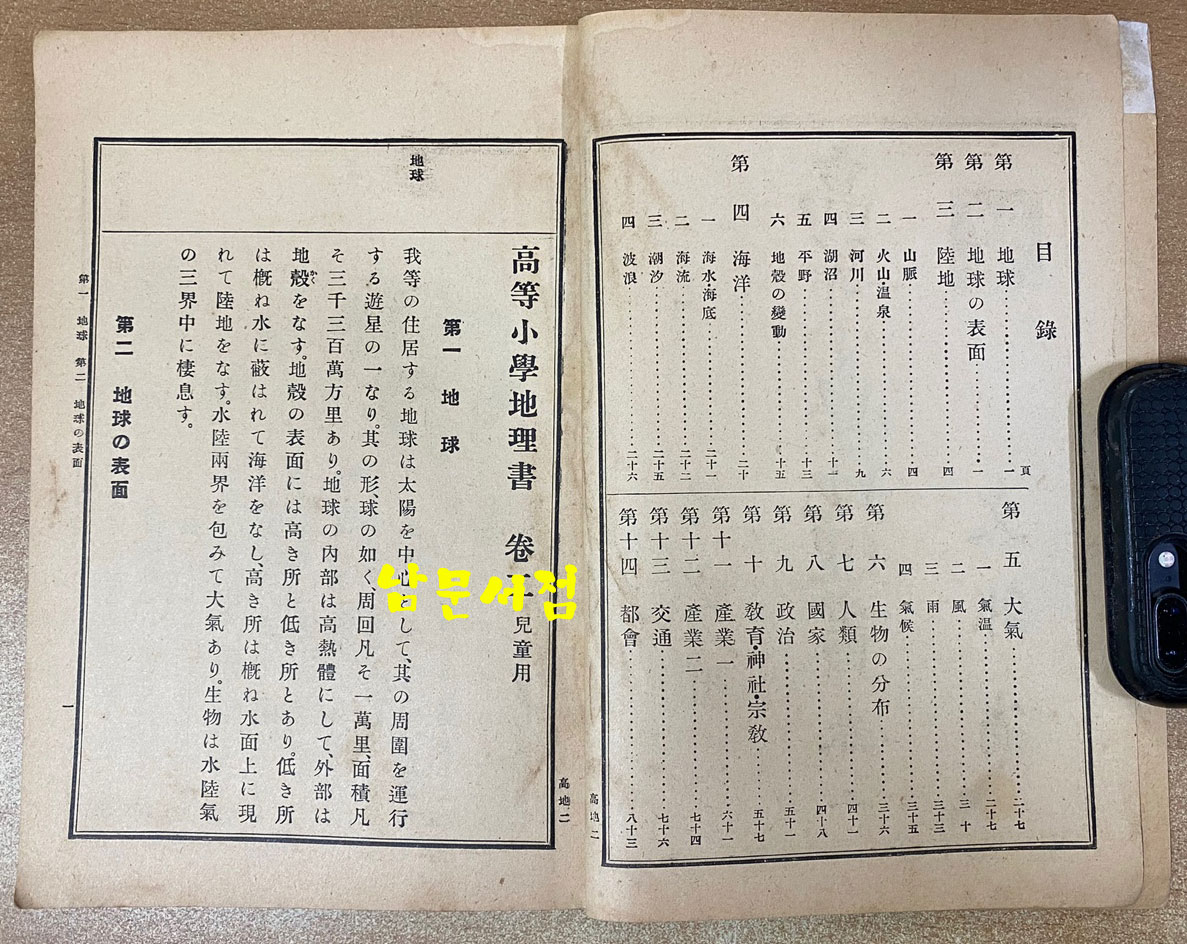 目錄
頁
第一 地球……一
第二 地球の表面……一
第三 陸地……四
一 山脈……四
二 火山・温泉……六
三 河川……九
四 湖沼……十一
五 平野……十三
六 地殼の變動……十五
第四 海洋……二十
一 海水・海底……二十一
二 海流……二十二
三 潮汐……二十五
四 波浪……二十六
第五 大氣……二十七
一 氣温……二十七
二 風……三十
三 雨……三十三
四 氣候……三十五
第六 生物の分布……三十六
第七 人類……四十一
第八 國家……四十八
第九 政治……五十一
第十 敎育・神社・宗敎……五十七
第十一 產業一……六十一
第十二 產業二……七十四
第十三 交通……七十六
第十四 都會……八十三
高地二
高地二
高等小學地理書 卷二 兒童用
地球
第一 地球
我等の住居する地球は太陽を中心として、其の周圍を運行
する遊星の一なり。其の形、球の如く、周回凡そ一萬里、面積凡
そ三千三百萬方里あり。地球の内部は高熱體にして、外部は
地殼かくをなす。地殼の表面には高き所と低き所とあり。低き所
は槪ね水に蔽はれて海洋をなし、高き所は槪ね水面上に現
れて陸地をなす。水陸兩界を包みて大氣あり。生物は水陸氣
の三界中に棲息す。
第二 地球の表面
第一 地球 第二 地球の表面
一
남문서점